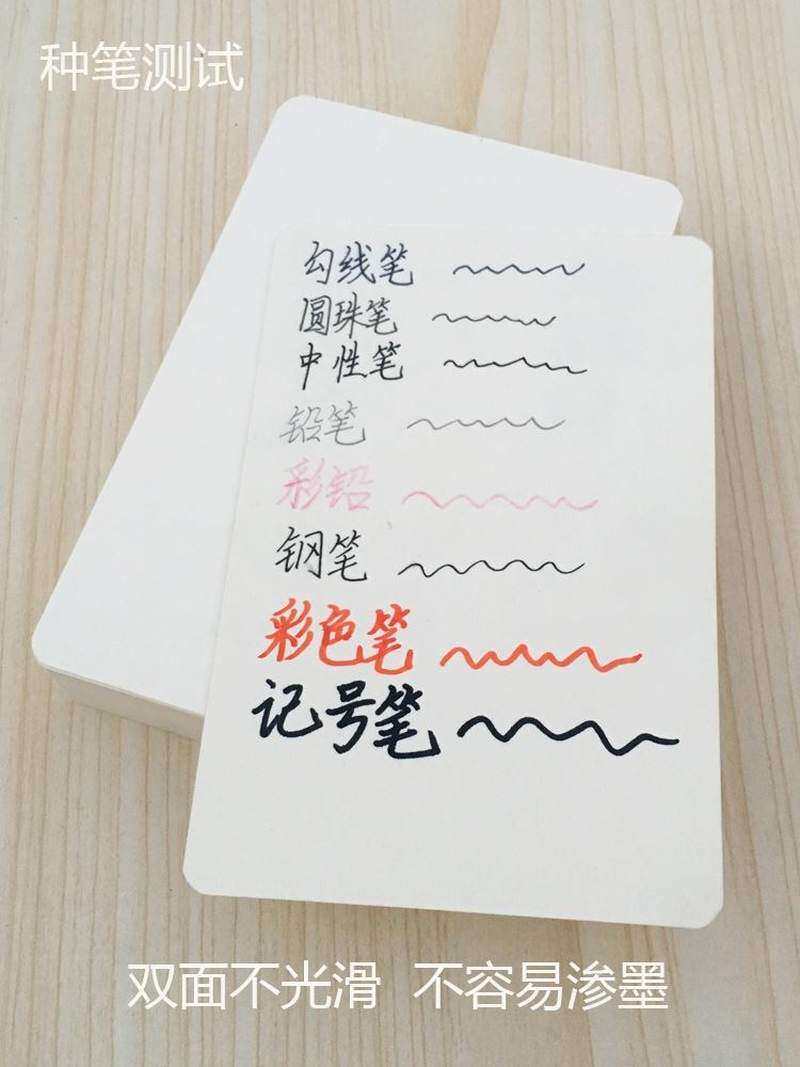 种笔测试
勾线笔
圆珠笔
中性笔
铅笔
彩铅
钢笔
彩色笔
记号笔
双面不光滑 不容易渗墨